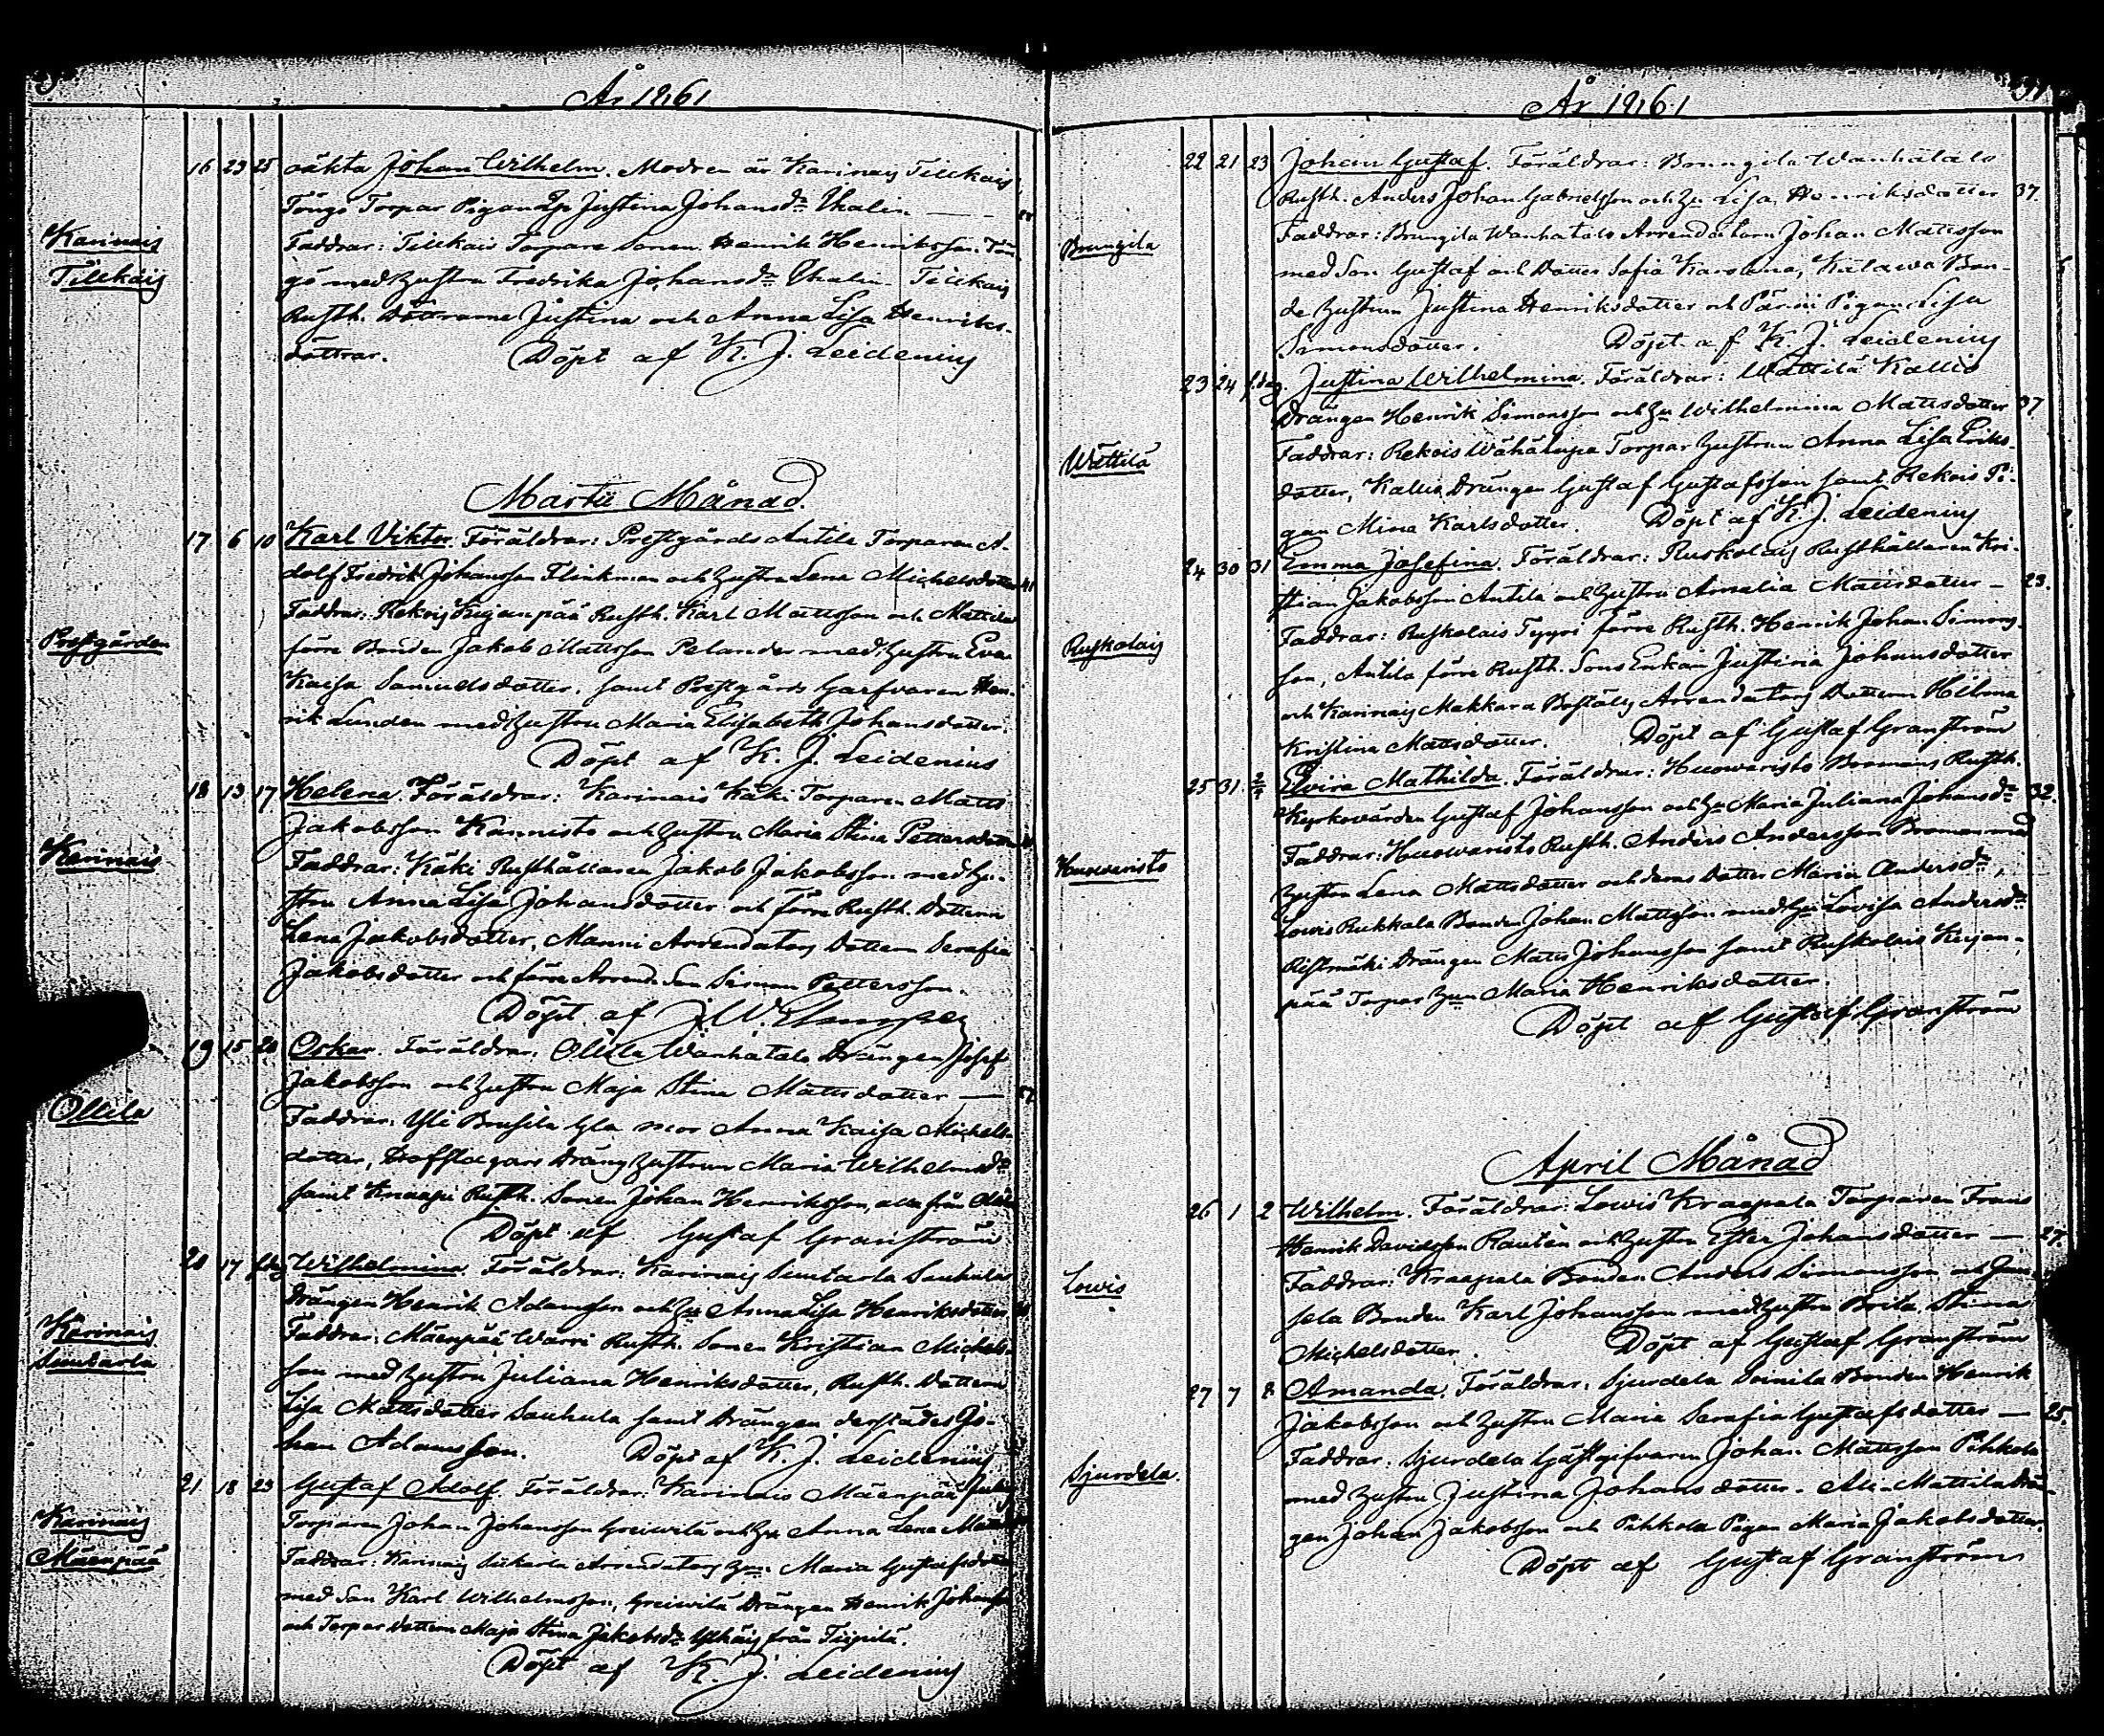 År 1861
16 23 25 oäkta Johan Wilhelm. Modren är Karinais Tillikais
Töngö Torpar Pigan Justina Johansdr Thalin
Karinais
Tillikais
Faddrar: Tillikais Torpare Sonen Henrik Henriksson Tön-
gö med hustru Fredrika Johansdr Thalin. Tillikais
Rusth. Döttrarne Justina och Anna Lisa Henriks-
döttrar. Döpt af K. J. Leidenius
Martii Månad.
17 6 10 Karl Viktor. Föräldrar: Prestgårds Antila Torparen A-
dolf Fredrik Johansson Flinkman och hustru Lena Michelsdotter 41
Prestgården
Faddrar: Rekois Kujanpää Rusth. Karl Mattsson och Mattila
förre Bonden Jakob Mattsson Pelander med hustru Eva
Kaisa Samuelsdotter, samt Prestgårds Garfvaren Hen-
rik Lunden med hustru Maria Elisabeth Johansdotter.
Döpt af K. J. Leidenius
18 13 17 Helena. Föräldrar: Karinais Käki Torparen Matts
Jakobsson Kannisto och hustru Maria Stina Pettersdotter
Karinais
Faddrar: Käki Rusthållaren Jakob Jakobsson med hu-
stru Anna Lisa Johansdotter och förre Rusth. Dottern
Lena Jakobsdotter, Manni Arrendators Dottern Serafia
Jakobsdotter och förre Arrend. Son Simon Pettersson.
Döpt af J. W.
19 15 20 Oskar. Föräldrar: Ollila Wanhatalo Drängen Josef
Jakobsson och hustru Maja Stina Mattsdotter
Ollila
Faddrar: Yli Brusila Gla mor Anna Kaisa Michels-
dotter, Dräng hustrun Maria Wilhelmsdr
samt Knaapi Rusth. Sonen Johan Henriksson, alla från Ollila
Döpt af Gustaf Granström
20 17 f.dag Wilhelmina. Föräldrar: Karinais Suutarla Sauhula
Drängen Henrik Adamsson och hu Anna Lisa Henriksdotter
Karinais
Suutarla
Faddrar: Mäenpää Warri Rusth. Sonen Kristian Michels-
son med hustru Juliana Henriksdotter, Rusth. Dottern
Lisa Mattsdotter Sauhula samt Drängen derstädes Jo-
han Adamsson. Döpt af K. J. Leidenius
21 18 23 Gustaf Adolf. Föräldrar: Karinais Mäenpää
Torparen Johan Johansson Greiwilä och hu Anna Lena
Karinais
Mäenpää
Faddrar: Karinais Arrendators hu. Maria Gustafsdotter
med Son Karl Wilhelmsson, Greiwilä Drängen Henrik Johansson
och Torpar dottern Maja Stina Jakobsdr från Tiipilä.
Döpt af K. J. Leidenius
År 1861
22 21 23 Johan Gustaf. Föräldrar: Brungila Wanhatalo
Rusth. Anders Johan Gabrielsson och hu Lisa Henriksdotter 37.
Brungila
Faddrar: Brungila Wanhatalo Arrendatorn Johan Mattsson
med Son Gustaf och Dotter Sofia Karolina, Kälawa Bon-
de hustrun Justina Henriksdotter och Pärni Pigan Lisa
Simonsdotter. Döpt af K. J. Leidenius
23 24 f.dag. Justina Wilhelmina. Föräldrar: Wättilä Kallio
Drängen Henrik Simonsson och hu Wilhelmina Mattsdotter 37
Wättilä
Faddrar: Rekois Wähätupa Torpar hustrun Anna Lisa Eriks-
dotter, Kallio Drängen Gustaf Gustafsson samt Rekois Pi-
gan Mina Karlsdotter. Döpt af K. J. Leidenius
24 30 31 Emma Josefina. Föräldrar: Ruskolais Rusthållaren Kri-
stian Jakobsson Antila och hustru Amalia Mattsdotter — 23.
Ruskolais
Faddrar: Ruskolais Tyyri förre Rusth. Henrik Johan Simons-
son, Antila förre Rusth. Sons Enkan Justina Johansdotter
och Karinais Makkara Boställs Arrendators Dottern Hilma
Kristina Mattsdotter. Döpt af Gustaf Granström
25 31 2/4 Elvira Mathilda. Föräldrar: Huowaristo Bromans Rusth.
Kyrkovärden Gustaf Johansson och hu Maria Juliana Johansdr 32.
Huowaristo
Faddrar: Huowaristo Rusth. Anders Andersson Broman med
hustru Lena Mattsdotter och deras Dotter Maria Andersdr,
Lowis Rukkala Bonden Johan Mattsson med hu Lovisa Andersdr
Ristmäki Drängen Matts Johansson samt Ruskolais Kujan-
pää Torpar hun Maria Henriksdotter.
Döpt af Gustaf Granström
April Månad
26 1 2 Wilhelm. Föräldrar: Lowis Kraapala Torparen Frans
Henrik Davidsson Rautin och hustru Ester Johansdotter — 27.
Lowis
Faddrar: Kraapala Bonden Anders Simonsson och
Bonden Karl Johansson med hustru Brita Stina
Michelsdotter. Döpt af Gustaf Granström
27 7 8 Amanda. Föräldrar: Sjurdela Soinila Bonden Henrik
Jakobsson och hustru Maria Serafia Gustafsdotter — 25.
Sjurdela.
Faddrar: Sjurdela Gästgifvaren Johan Mattsson Pihkola
med hustru Justina Johansdotter. Ali-Mattila Drän-
gen Johan Jakobsson och Pihkola Pigan Maria Jakobsdotter.
Döpt af Gustaf Granström